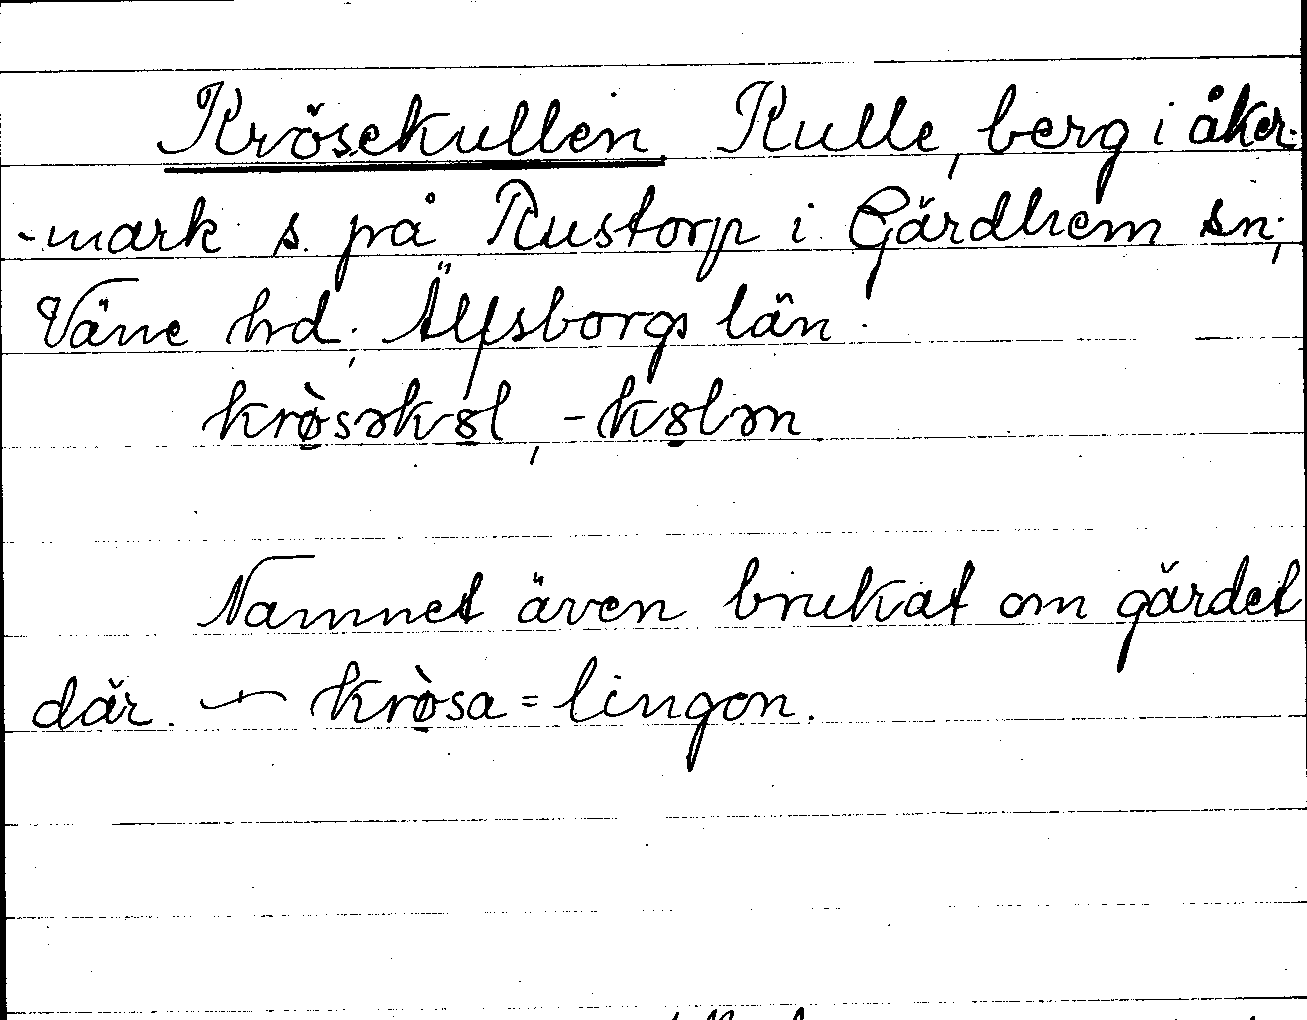 Krösekullen Kulle, berg i åker-
-mark s. på Rustorp i Gärdhem sn;
Väne hd; Älfsborgs län.
krø̀səkɞl, -kɞlən
Namnet även brukat om gärdet
där. — krø̀sa = lingon.